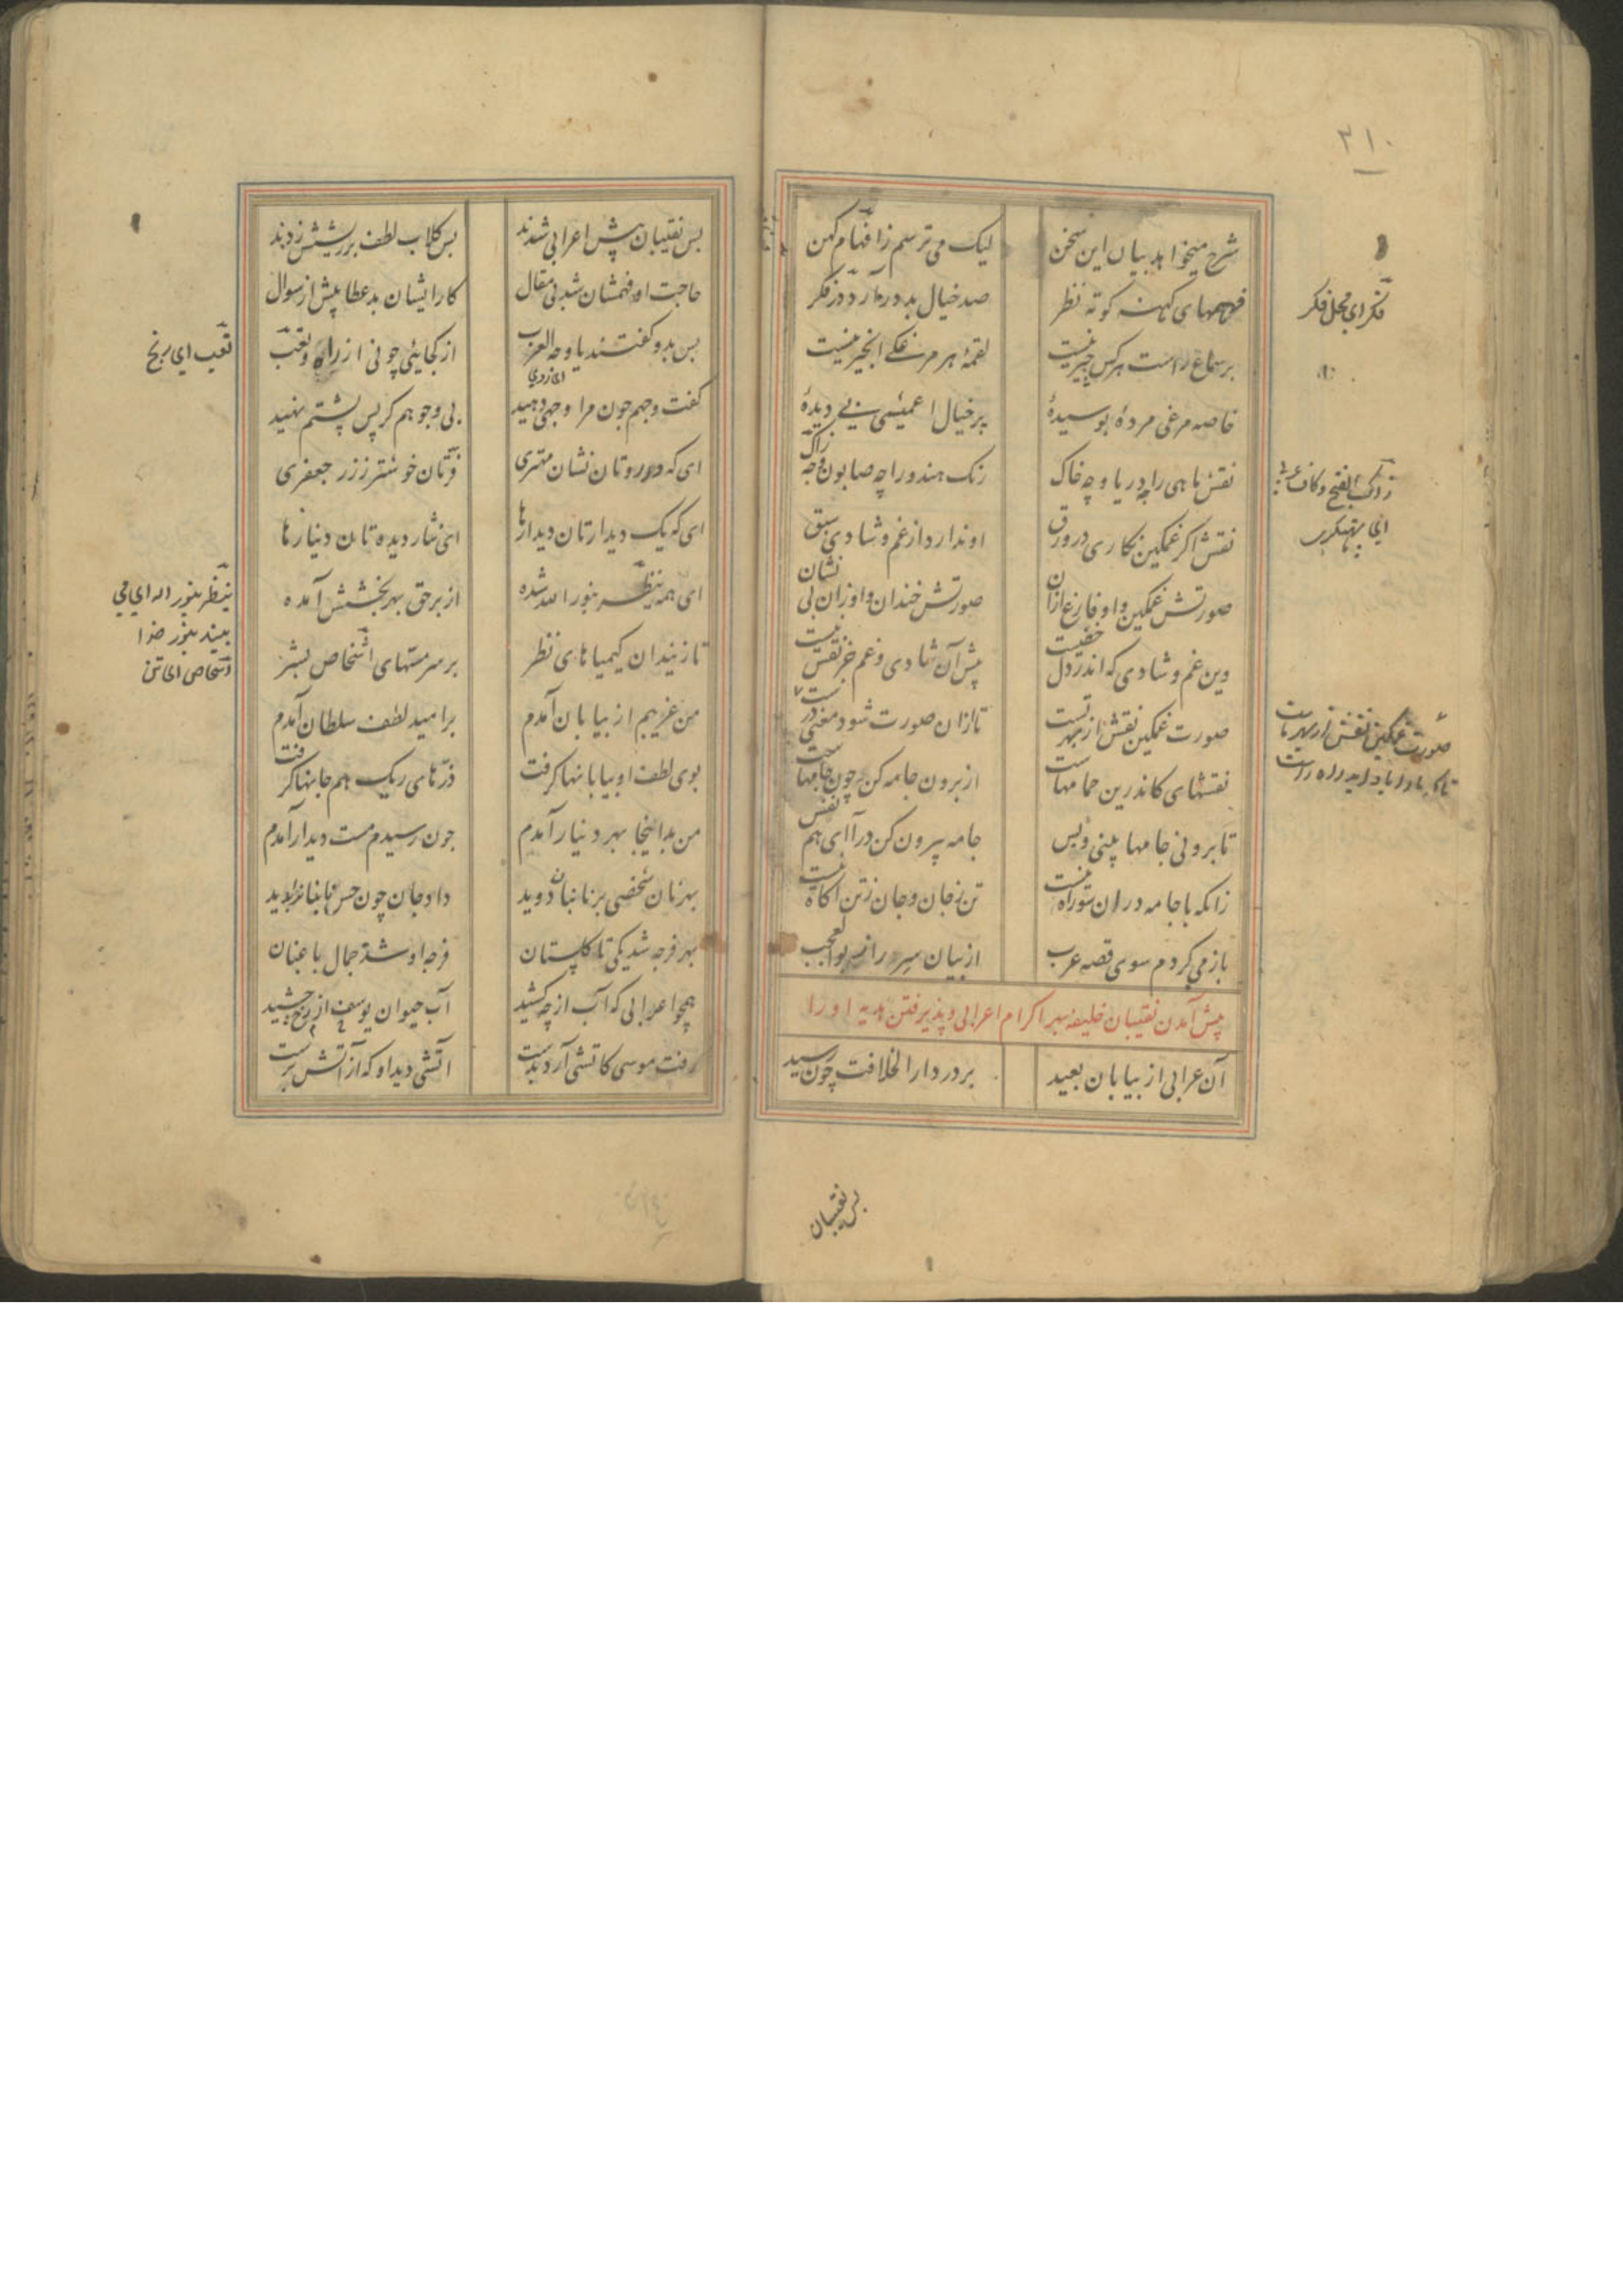 ۳۱۰
شرح میخواهد بیان این سخن لیک می ترسم ز افهام کهن
فهمهای کهنه کوته نظر صد خیال بد درآرد در فکر
بر سماع راست هر کس چیر نیست لقمهٔ هر مرغکی انجیر نیست
خاصه مرغی مردهٔ بوسیدهٔ پر خیال اعمیئی بی دیدهٔ
نقش ماهی را چه دریا و چه خاک رنک هندو را چه صابون و چه زاک
نقش اکر غمکین نکاری در ورق او ندارد از غم و شادی سبق
صورتش غمکین و او فارغ ازان صورتش خندان و او زان بی نشان
وین غم و شادی که اندر دل خفیست پیش آن شادی و غم جز نقش نیست
صورت غمکین نقش از بهر تست تا ازان صورت شود معنی درست
نقشهای کاندرین حمامهاست از برون جامه کن چون جامهاست
تا برونی جامها بینی و بس جامه بیرون کن درآ ای هم نفس
زانکه با جامه دران سو راه نیست تن ز جان و جان ز تن اکاه نیست
باز می کردم سوی قصه عرب از بیان سر راز بوالعجب
پیش آمدن نقیبان خلیفه بهر اکرام اعرابی و پذیرفتن هدیه او را
آن عرابی از بیابان بعید بر در دار الخلافت چون رسید
فکر ای محل فکر
زاک بالفتح و کاف عربی
صورت غمکین نقش از بهر ماست
تا که ما را یاد آید راه راست
بس نقیبان
بس نقیبان پیش اعرابی شدند بس کلاب لطف بر ریشش زدند
حاجت او فهمشان شد بی مقال کار ایشان بد عطا پیش از سوال
بس بدو کفتند یا وجه العرب از کجایی چونی از راه و تعب
ای روی
کفت وجهم چون مرا وجهی دهید بی وجوهم کر پس پشتم نهید
ای که در روتان نشان مهتری فرتان خوشتر ز زر جعفری
ای که یک دیدارتان دیدارها ای نثار دیده تان دینارها
ای همه ینظر بنور الله شده از بر حق بهر بخشش آمده
تا زنید آن کیمیاهای نظر بر سر مسهای اشخاص بشر
من غریبم از بیابان آمدم بر امید لطف سلطان آمدم
بوی لطف او بیابانها کرفت ذرهای ریک هم جانها کرفت
من بدینجا بهر دینار آمدم چون رسیدم مست دیدار آمدم
بهر نان شخصی بر نانبا دوید داد جان چون حسن نانبا را بدید
بهر فرجه شد یکی تا کلستان فرجه او شد جمال باغبان
همچو اعرابی که آب از چه کشید آب حیوان از رخ یوسف چشید
رفت موسی کاتشی آرد بدست آتشی دید او که از آتش برست
تعب ای رنج
ینظر بنور اله ای می
بیند بنور خدا
اشخاص ای تن